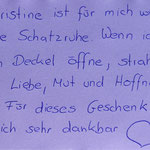 ristine ist für mich w
e Schatzruhe. Wenn ic
n Deckel öffne, strah
Liebe, Mut und Hoffn
Für dieses Geschenk
ich sehr dankbar